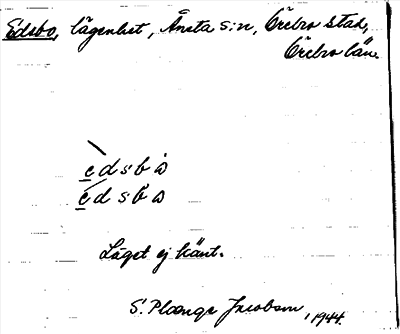 Edsbo, lägenhet, Ånsta s:n, Örebro stad,
Örebro län.
edsbo
edsbo
Läget ej känt.
S. Plænge Jacobson, 1944.